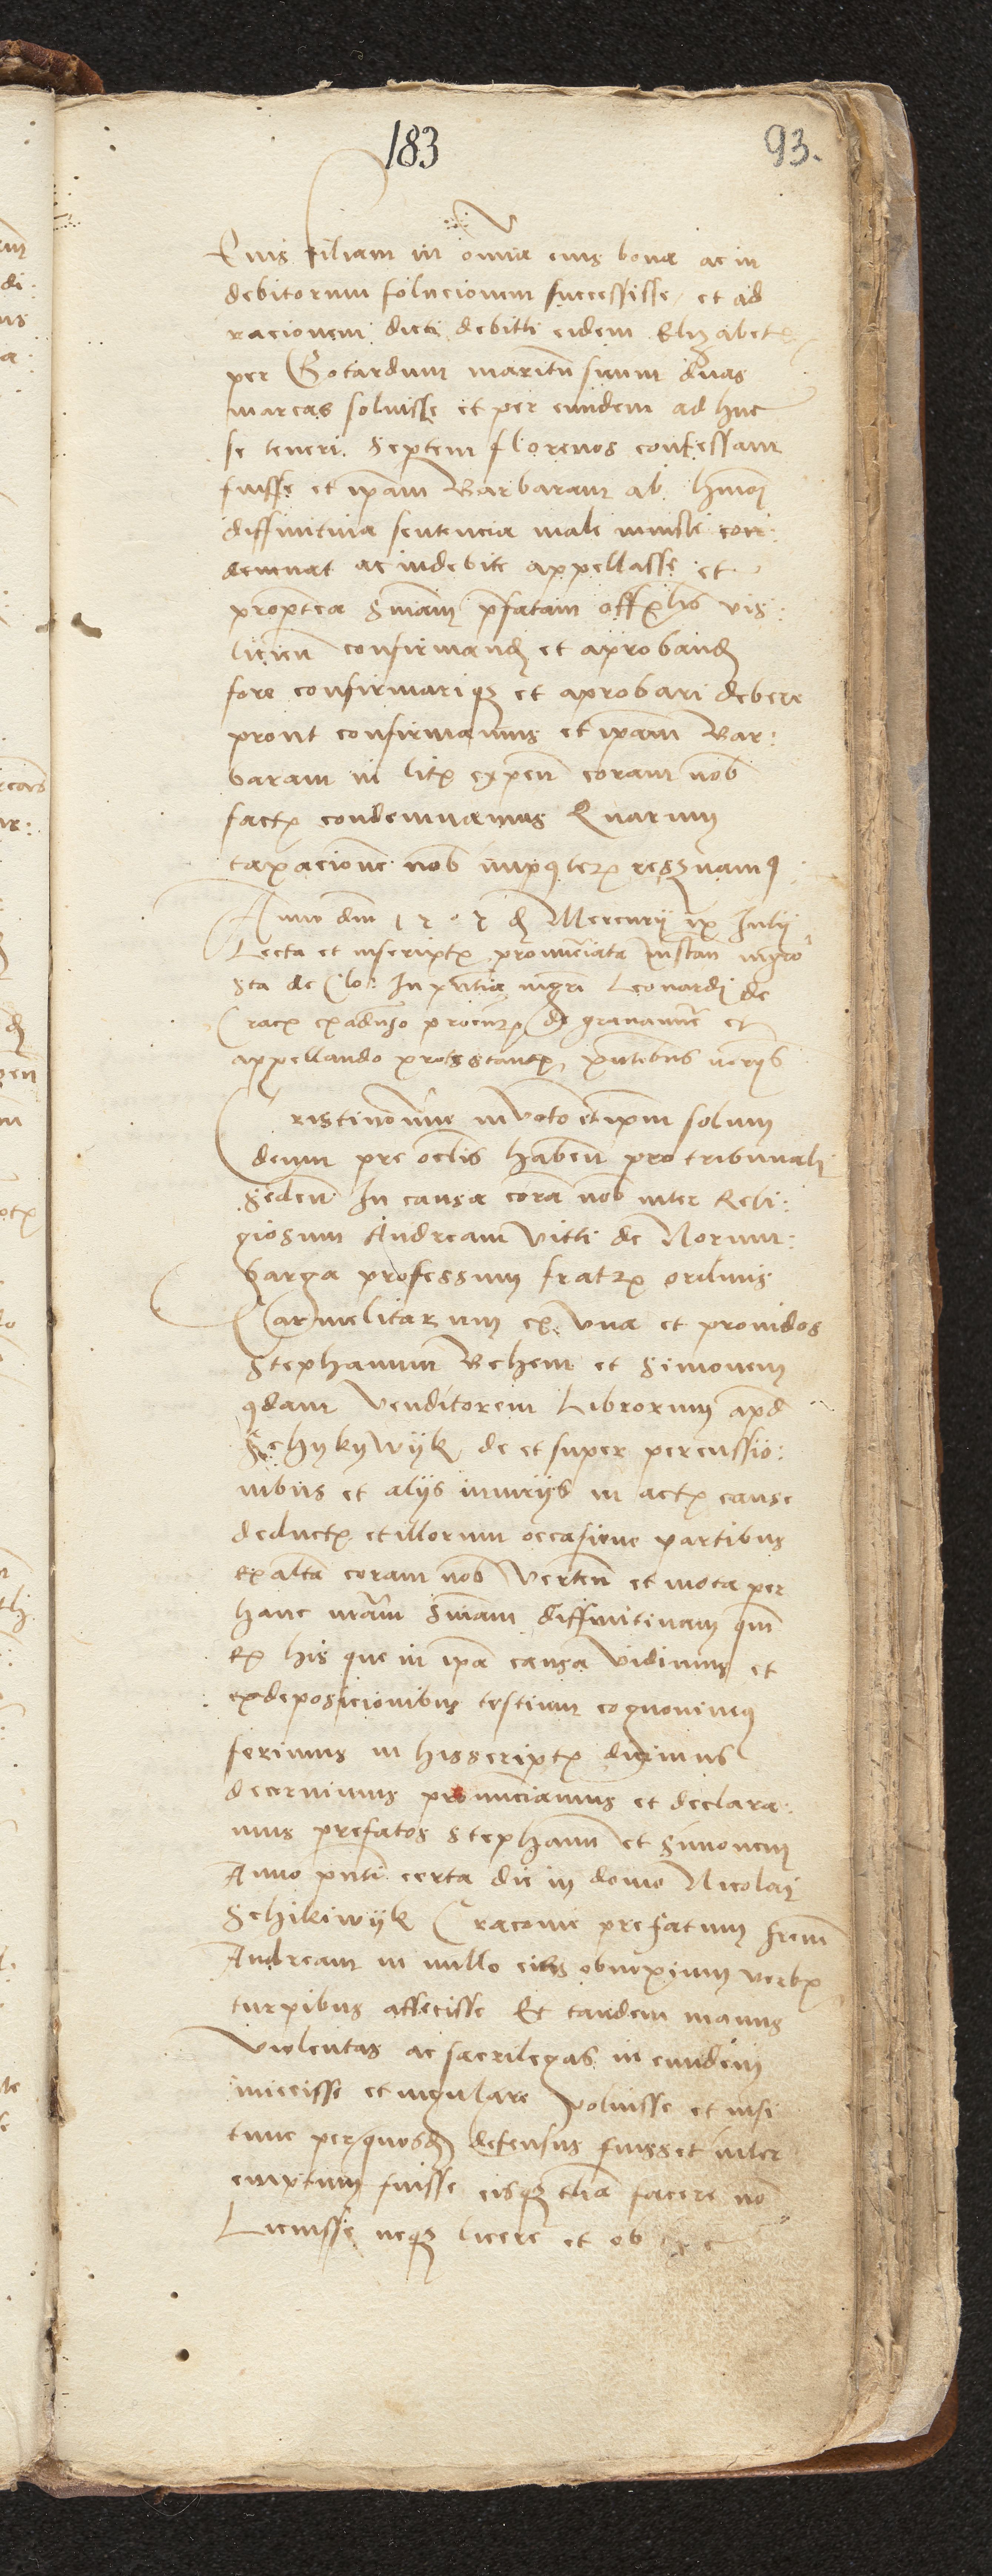 183
93.
Eius filiam in omnia eius bona ac in
debitorum solucionem successisse et ad
racionem dicti debitti eidem Elizabet
per Gotardum maritu͂ suum duas
marcas soluisse et per eundem ad huc
se teneri Septem florenos confessam
fuisse et ip̄am Barbaram ab hm̄oi
diffinitiua sentencia male iniuste con:
demnat ac indebite appellasse et
propterea Sniam p̄fatam offīlis vis
licien̄ confirmand et aproband
fore confirmariq et aprobari debere
prout confirmamus et ip̄am Bar:
baram in lit expen̄ coram nob
fact condemnamus Quarum
taxacione nob imposter reseruam9
Anno dm̄ 1505 d Mercurij ix Julij
Lecta et inscript pronuncciata Instan̄ mgrō
Sta de Clo: In p̄ntia mgri Leonardi de
Crac ex aduerso procur de grauamine et
appellando protestant, p̄ntibus
Cristi nomine inuocato et ipm̄ solum
deum pre oclis haben̄ pro tribunali
Seden̄ In causa cora nob inter Reli:
giosum Andream Vitti de Norim:
barga professum fratr ordinis
Carmelitarum ex vna et prouidos
Stephanum Behem et Simonem
qdam Venditorem Librorum ap̄d
Schykywyk de et super percussio:
nibus et alijs iniurijs in act cause
deduct et illorum occasione partibus
ex alta coram nob Verten̄ et mota per
hanc nr̄am Sniam diffinitiuam qm̄
ex his que in ip̄a causa vidimus et
ex deposicionibus testium cognouimus
ferimus in his script dicimus
decernimus pronuncciamus et declara:
mus prefatos Stephanu͂ et Simonem
Anno p̄nti certa die in domo Nicolaj
Schikiwyk Cracouie prefatum frem̄
Andream in nullo eius obnoxium verb
turpibus affecisse Et tandem manus
Violentas ac sacrilegas in eundem
iniecisse et iugulare voluisse et nisi
tunc per quosd defensus fuisset inter
emptum fuisse eisq etiā facere no
Licuisse neq licere et ob